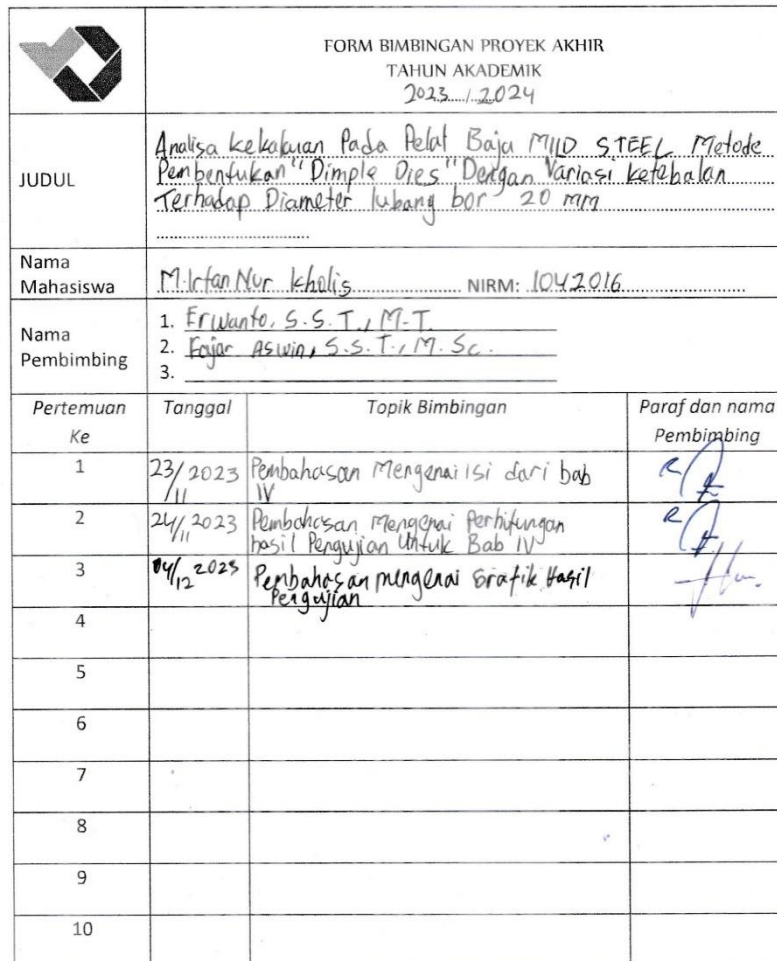 FORM BIMBINGAN PROYEK AKHIR
TAHUN AKADEMIK
2023 / 2024
JUDUL
Analisa kekakuan Pada Pelat Baja MILD STEEL Metode
Pembentukan "Dimple Dies" Dengan Variasi ketebalan
Terhadap Diameter lubang bor 20 mm
Nama
Mahasiswa
M.Irfan Nur kholis NIRM: 1042016
Nama
Pembimbing
1. Erwanto, S.S.T., M.T.
2. Fajar Aswin, S.S.T., M.Sc.
3.
Pertemuan Ke Tanggal Topik Bimbingan Paraf dan nama Pembimbing
1 23/11 2023 Pembahasan Mengenai isi dari bab
IV
2 24/11 2023 Pembahasan Mengenai Perhitungan
hasil Pengujian Untuk Bab IV
3 04/12 2023 Pembahasan mengenai Grafik Hasil
Pengujian
4
5
6
7
8
9
10